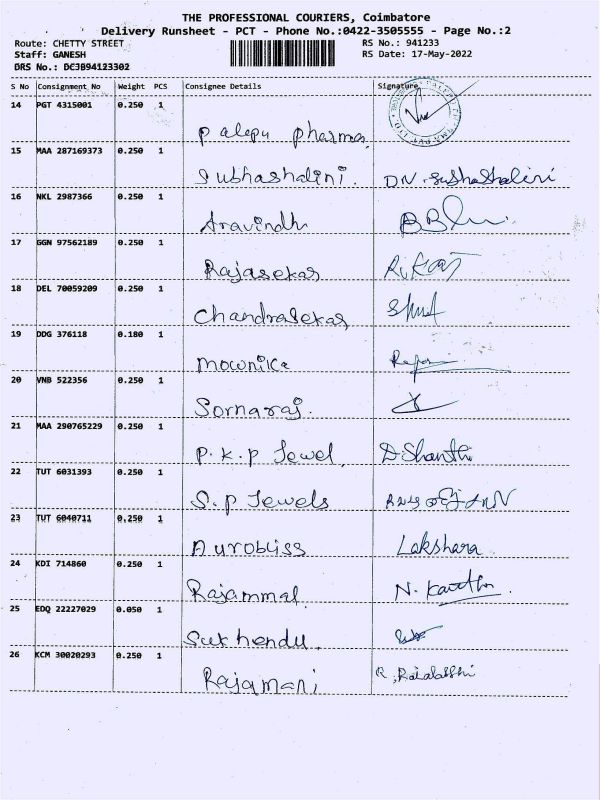 THE PROFESSIONAL COURIERS, Coimbatore
Delivery Runsheet - PCT - Phone No.:0422-3505555 - Page No.:2
Route: CHETTY STREET RS No.: 941233
Staff: GANESH RS Date: 17-May-2022
DRS No.: DCJB94123302
S No Consignment No Weight PCS Consignee Details Signature
14 PGT 4315001 0.250 1
Palepu pharma
15 MAA 287169373 0.250 1
Subhashalini. DN.
16 NKL 2987366 0.250 1
Aravindh
17 GGN 97562189 0.250 1
Rajasekar
18 DEL 70059209 0.250 1
Chandrasekar
19 DDG 376118 0.180 1
Mownika
20 VNB 522356 0.250 1
Sornaraj.
21 MAA 290765229 0.250 1
P.K.P Jewel, D.Shanthi
22 TUT 6031393 0.250 1
S.P Jewels
23 TUT 6040711 0.250 1
Aurobliss Lakshara
24 KDI 714860 0.250 1
Rajammal N.
25 EDQ 22227029 0.050 1
Sukhendu.
26 KCM 30020293 0.250 1
Rajamani R.